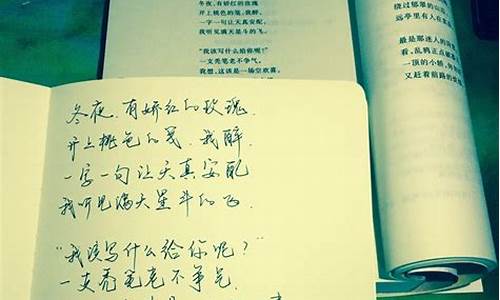 冬夜,有娇红的玫瑰
开上桃色的笺,我醉,
一字一句让天真安配
我听见满天星斗的飞
"我该写什么给你呢?"
一支秃笔老不争气,
冬夜,有娇红的玫瑰
开上桃色的笺,我醉,
一字一句让天真安配,
我听见满天星斗的飞。
"我该写什么给你呢?"
一支秃笔老不争气,
我想,这该是一场空欢喜。
绕过郁翠的
远亭里有人在
最是那迷人的
看,乱鸦正点
一顶的小轿,
又赶着前路的